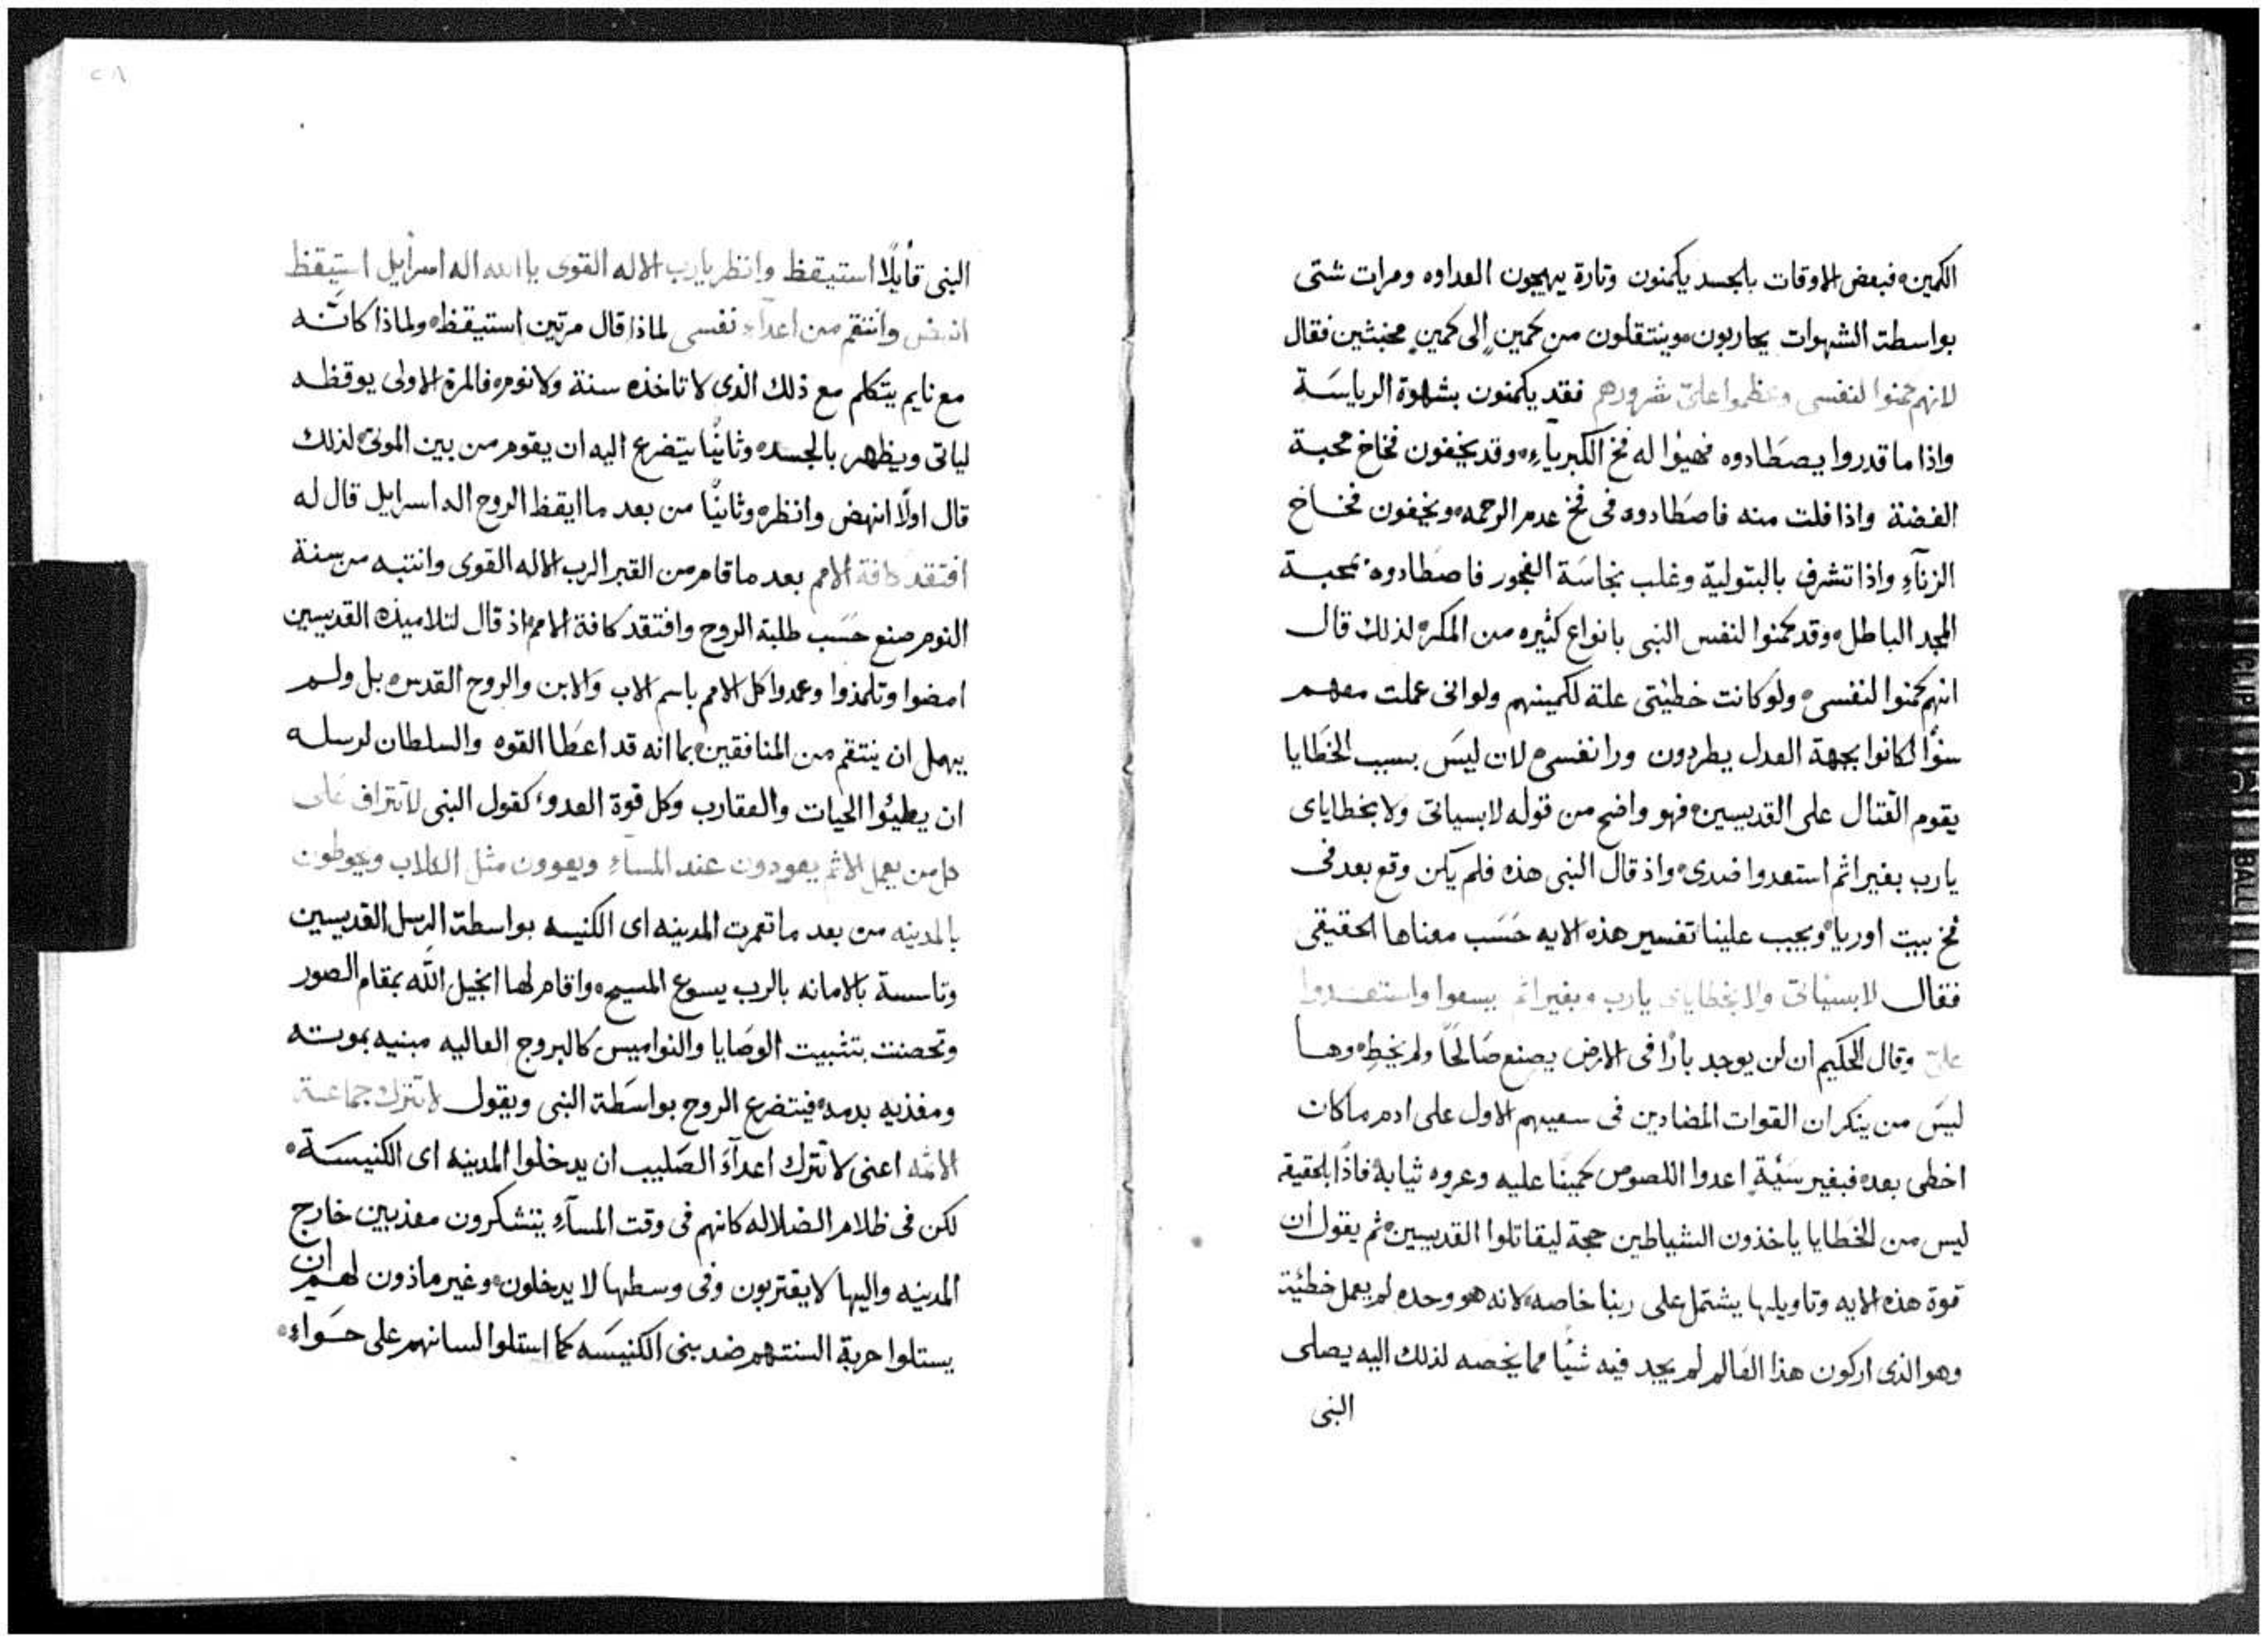 الكمين، فبعض الاوقات بالجسد يكمنون وتارة يهيجون العداوه ومرات شتى
بواسطة الشهوات يحاربون، وينتقلون من كمينٍ إلى كمينٍ مخبثين فقال
لانهم كمنوا لنفسى وعظموا علىّ شرورهم فقد يكمنون بشهوة الرياسَة
واذا ما قدروا يصطَادوه فهيؤا له فخ الكبريآءِ، وقد يخفون فخاخ محبة
الفضة واذا فلت منه فاصطَادوه فى فخ عدم الرحمه، ويخفون فخاخ
الزنآءِ واذا تشرف بالبتولية وغلب نجاسَة الفجور فاصطَادوه، بمحبة
المجد الباطل، وقد كمنوا لنفس النبى بانواع كثيره من المكر، لذلك قال
انهم كمنوا لنفسى، ولو كانت خطيتى علة لكمينهم ولوانى عملت معهم
سؤًا لكانوا بجهة العدل يطردون ورا نفسى، لان ليسَ بسبب الخطَايا
يقوم القتال على القديسين، فهو واضح من قوله لا بسياتى ولا بخطاياى
يارب بغير اثم استعدوا ضدى، واذ قال النبى هذه فلم يكن وقع بعد فى
فخ بيت اوريا، ويجب علينا تفسير هذه الايه حَسَب معناها الحقيقى
فقال لا بسياتى ولا بخطاياى يارب، بغير اثم يسعوا واستعدوا
علىّ وقال الحكيم ان لن يوجد بارًا فى الارض يصنع صَالحًا ولم يخطِ، وها
ليسَ من ينكر ان القوات المضادين فى سعيهم الاول على ادم ما كان
اخطى بعد، فبغير سَئيةٍ اعدوا اللصوص كمينًا عليه وعروه ثيابة، فاذًا بالحقيقة
ليس من الخطَايا ياخذون الشياطين حجة ليقاتلوا القديسين، ثم يقول ان
قوة هذه الايه وتاويلها يشتمل على ربنا خاصه، لانه هو وحده لم يعمل خطئية
وهو الذى اركون هذا العَالم لم يجد فيه شيًا مما يخصه لذلك اليه يصلى
النبى
٢٨
النبى قايلًا استيقظ وانظر يارب الاله القوى يا الله اله اسرايل استيقظ
انهض وانتقم من اعدآءِ نفسى لماذا قال مرتين استيقظ، ولماذا كانَّه
مع نايم يتكلم مع ذلك الذى لا تاخذه سنة ولا نوم، فالمرة الاولى يوقظه
لياتى ويظهر بالجسد، وثانيًا يتضرع اليه ان يقوم من بين الموتى، لذلك
قال اولًا انهض وانظر، وثانيًا من بعد ما ايقظ الروح اله اسرايل قال له
افتقد كافة الامم بعد ما قام من القبر الرب الاله القوى وانتبه من سنة
النوم صنع حَسَب طلبة الروح وافتقد كافة الامم، اذ قال لتلاميذه القديسين
امضوا وتلمذوا وعمدوا كل الامم باسم الاب والابن والروح القدس، بل ولم
يهمل ان ينتقم من المنافقين، بما انه قد اعطَا القوه والسلطان لرسله
ان يطيئوا الحيات والعقارب وكل قوة العدو، كقول النبى لا تتراف على
كل من يعمل الاثم يعودون عند المسآءِ ويعوون مثل الكلاب ويحوطون
بالمدينه من بعد ما تعمرت المدينه اى الكنيسه بواسطة الرسل القديسين
وتاسسة بالامانه بالرب يسوع المسيح، واقام لها انجيل الله بمقام الصور
وتحصنت بتثبيت الوصَايا والنواميس كالبروج العاليه مبنيه بموته
ومغذيه بدمه، فيتضرع الروح بواسَطة النبى ويقول لا تترك جماعة
الاثمه اعنى لا تترك اعدآءَ الصَليب ان يدخلوا المدينه اى الكنيسَة،
لكن فى ظلام الضلاله كانهم فى وقت المسآءِ يتشكرون معذبين خارج
المدينه واليها لا يقتربون وفى وسطها لا يدخلون، وغير ماذون لهم ان
يستلوا حربة السنتهم ضد بنى الكنيسَه كما استلوا لسانهم على حَواءِ،